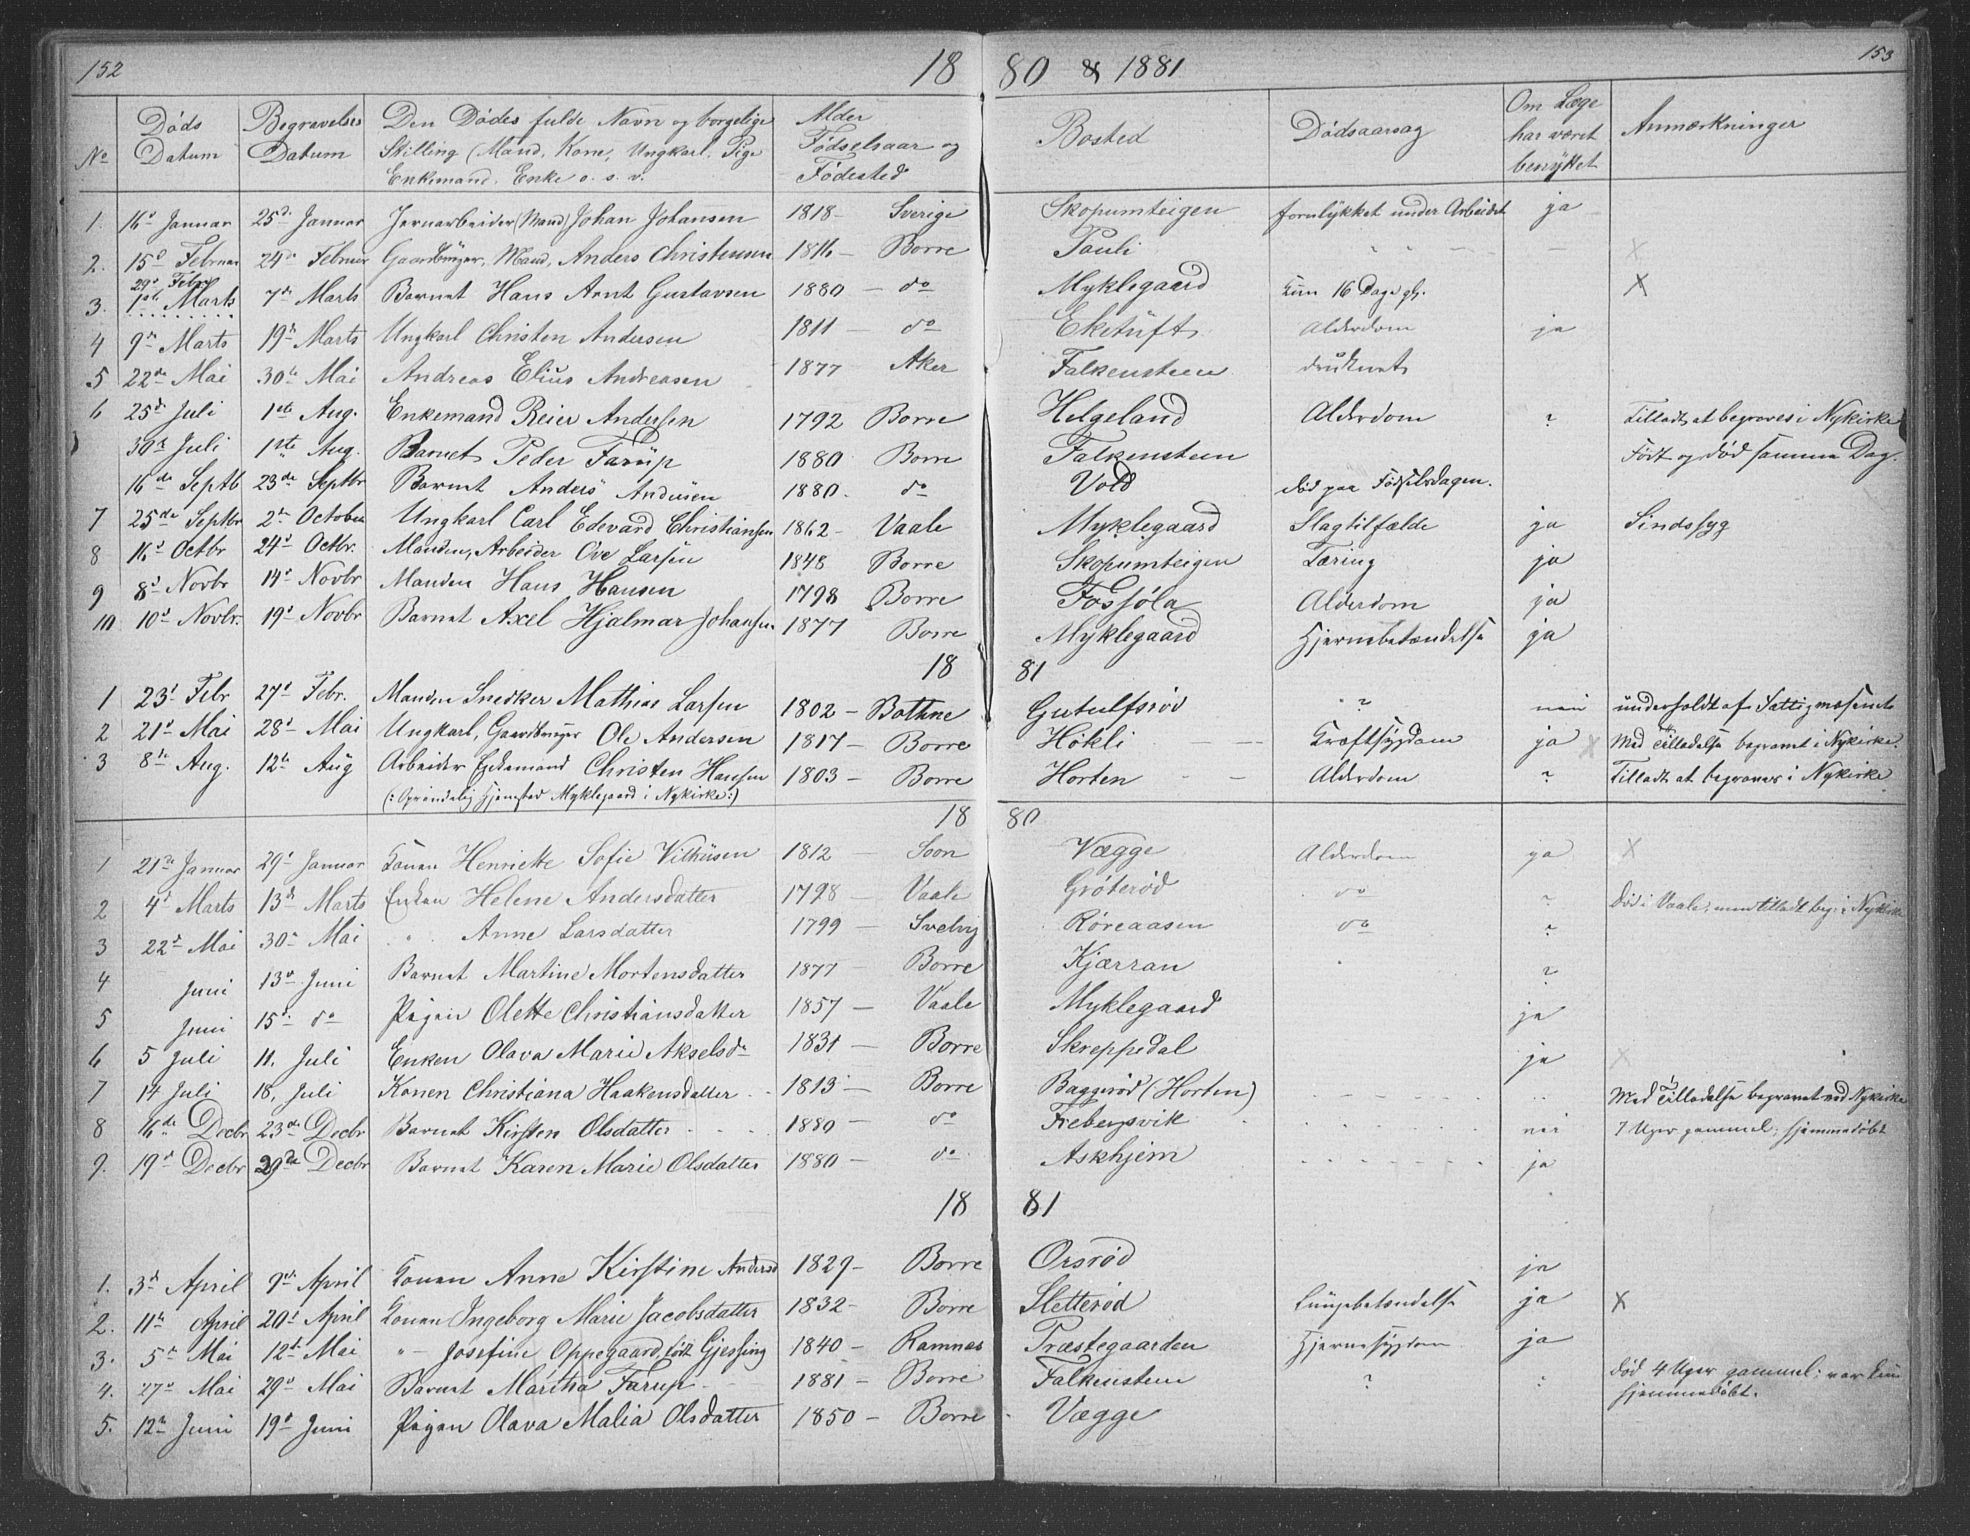 152 18 80 & 1881 153
No Døds Datum Begravelses Datum Den Dødes fulde Navn og borgelige Stilling (Mand, Kone, Ungkarl, Pige Enkemand, Enke o. s. v. Alder Fødselsaar og Fødested Bosted Dødsaarsag Om Læge har været benyttet Anmærkninger
1. 16d Januar 25d Januar Jernarbeider (Mand) Johan Johansen 1818 - Sverige Skopumteigen forulykket under Arbeidet ja
2. 15d Februar 24de Februar Gaardbruger, Mand, Anders Christensen 1816 - Borre Pauli " " - - - x
3. 29d Febr 1ste Marts 7de Marts Barnet Hans Arnt Gustavsen 1880 - do Myklegaard kun 16 Dage gl. x
4 9de Marts 19de Marts Ungkarl Christen Andersen 1811 - do Eketuft Alderdom ja
5 22de Mai 30te Mai Andreas Elius Andreasen 1877 Aker Falkensteen druknet
6 25d Juli 1ste Aug. Enkemand Reier Anderssen 1792 - Borre Helgeland Alderdom ? Tilladt at begraves i Nykirke
30te Juli 1ste Aug. Barnet Peder Farup 1880 Borre Falkensteen Født og død samme Dag.
16de Septb 23de Septbr Barnet Anders Andersen 1880. do Vold død paa Fødselsdagen.
7 25de Septbr 2de October Ungkarl Carl Edevard Christiansen 1862 - Vaale Myklegaard Slagtilfælde ja Sindssyg
8 16d Octbr 24d Octbr. Manden, Arbeider Ove Larsen 1848 Borre Skopumteigen Tæring ja
9 8d Novbr 14d Novbr Manden Hans Hansen 1798 Borre Fossjøla Alderdom ja
10. 10d Novbr. 19d Novbr Barnet Axel Hjalmar Johansen 1877 Borre Myklegaard Hjernebetændelse ja
18 81
1 23d Febr 27d Febr. Manden Snedker Mathias Larsen 1802 - Bothne Gutulfsrød ? nei underholdt af Fattigvæsenet
2 21d Mai 28d Mai Ungkarl, Gaardbruger Ole Andersen 1817 - Borre Høkli - - Kræftsygdom ja x Med Tilladelse begravet i Nykirke.
3 8de Aug. 12te Aug Arbeider Enkemand Christen Hansen 1803 - Borre Horten - - Alderdom ? Tilladt at begraves i Nykirke
(: Oprindelig Hjemsted Myklegaard i Nykirke :)
18 80
1 21de Januar 29d Januar Konen Henriette Sofie Vilhusen 1812 - Soon Vægge Alderdom ja x
2 4d Marts 13d Marts Enken Helene Andersdatter 1798 - Vaale Grøterød do ? død i Vaale; men tilladt begr. i Nykirke
3 22d Mai 30te Mai " Anne Larsdatter 1799 - Svelvig Røreaasen do ?
4 Juni 13d Juni Barnet Martine Mortensdatter 1877 - Borre Kjærran ?
5 Juni 15d do Pigen Olette Christiansdatter 1857 - Vaale Myklegaard ja
6 5 Juli 11. Juli Enken Olava Marie Akselsdr 1831 - Borre Skreppedal ja x
7 14 Juli 18. Juli Konen Christiana Haakensdatter 1813 - Borre Baggerød (Horten) - - - - .. Med Tilladelse begravet ved Nykirke
8 16de Decbr 23de Decbr Barnet Kirsten Olsdatter 1880 - do Frebergsvik - - - - nei 7 Uger gammel; hjemmedøbt
9. 19d Decbr 29de Decbr Barnet Karen Marie Olsdatter 1880 - do Askhjem - - - - ja
18 81
1. 3d April 9de April Konen Anne Kirstine Andersd 1829 - Borre Orsrød ja
2. 11te April 20de April Konen Ingeborg Marie Jacobsdatter 1832 - Borre Sletterød Lungebetændelse ja x
3. 5te Mai 12te Mai " - Josefine Oppegaard, født Gjessing 1840 - Ramnæs Præstegaarden Hjernesygdom ja
4. 27d Mai 29d Mai Barnet Martha Farup - 1881 - Borre Falkensteen ? : død 4 Uger gammel; var kun hjemmedøbt.
5. 12te Juni 19d Juni Pigen Olava Malia Olsdatter 1850 - Borre - Vægge